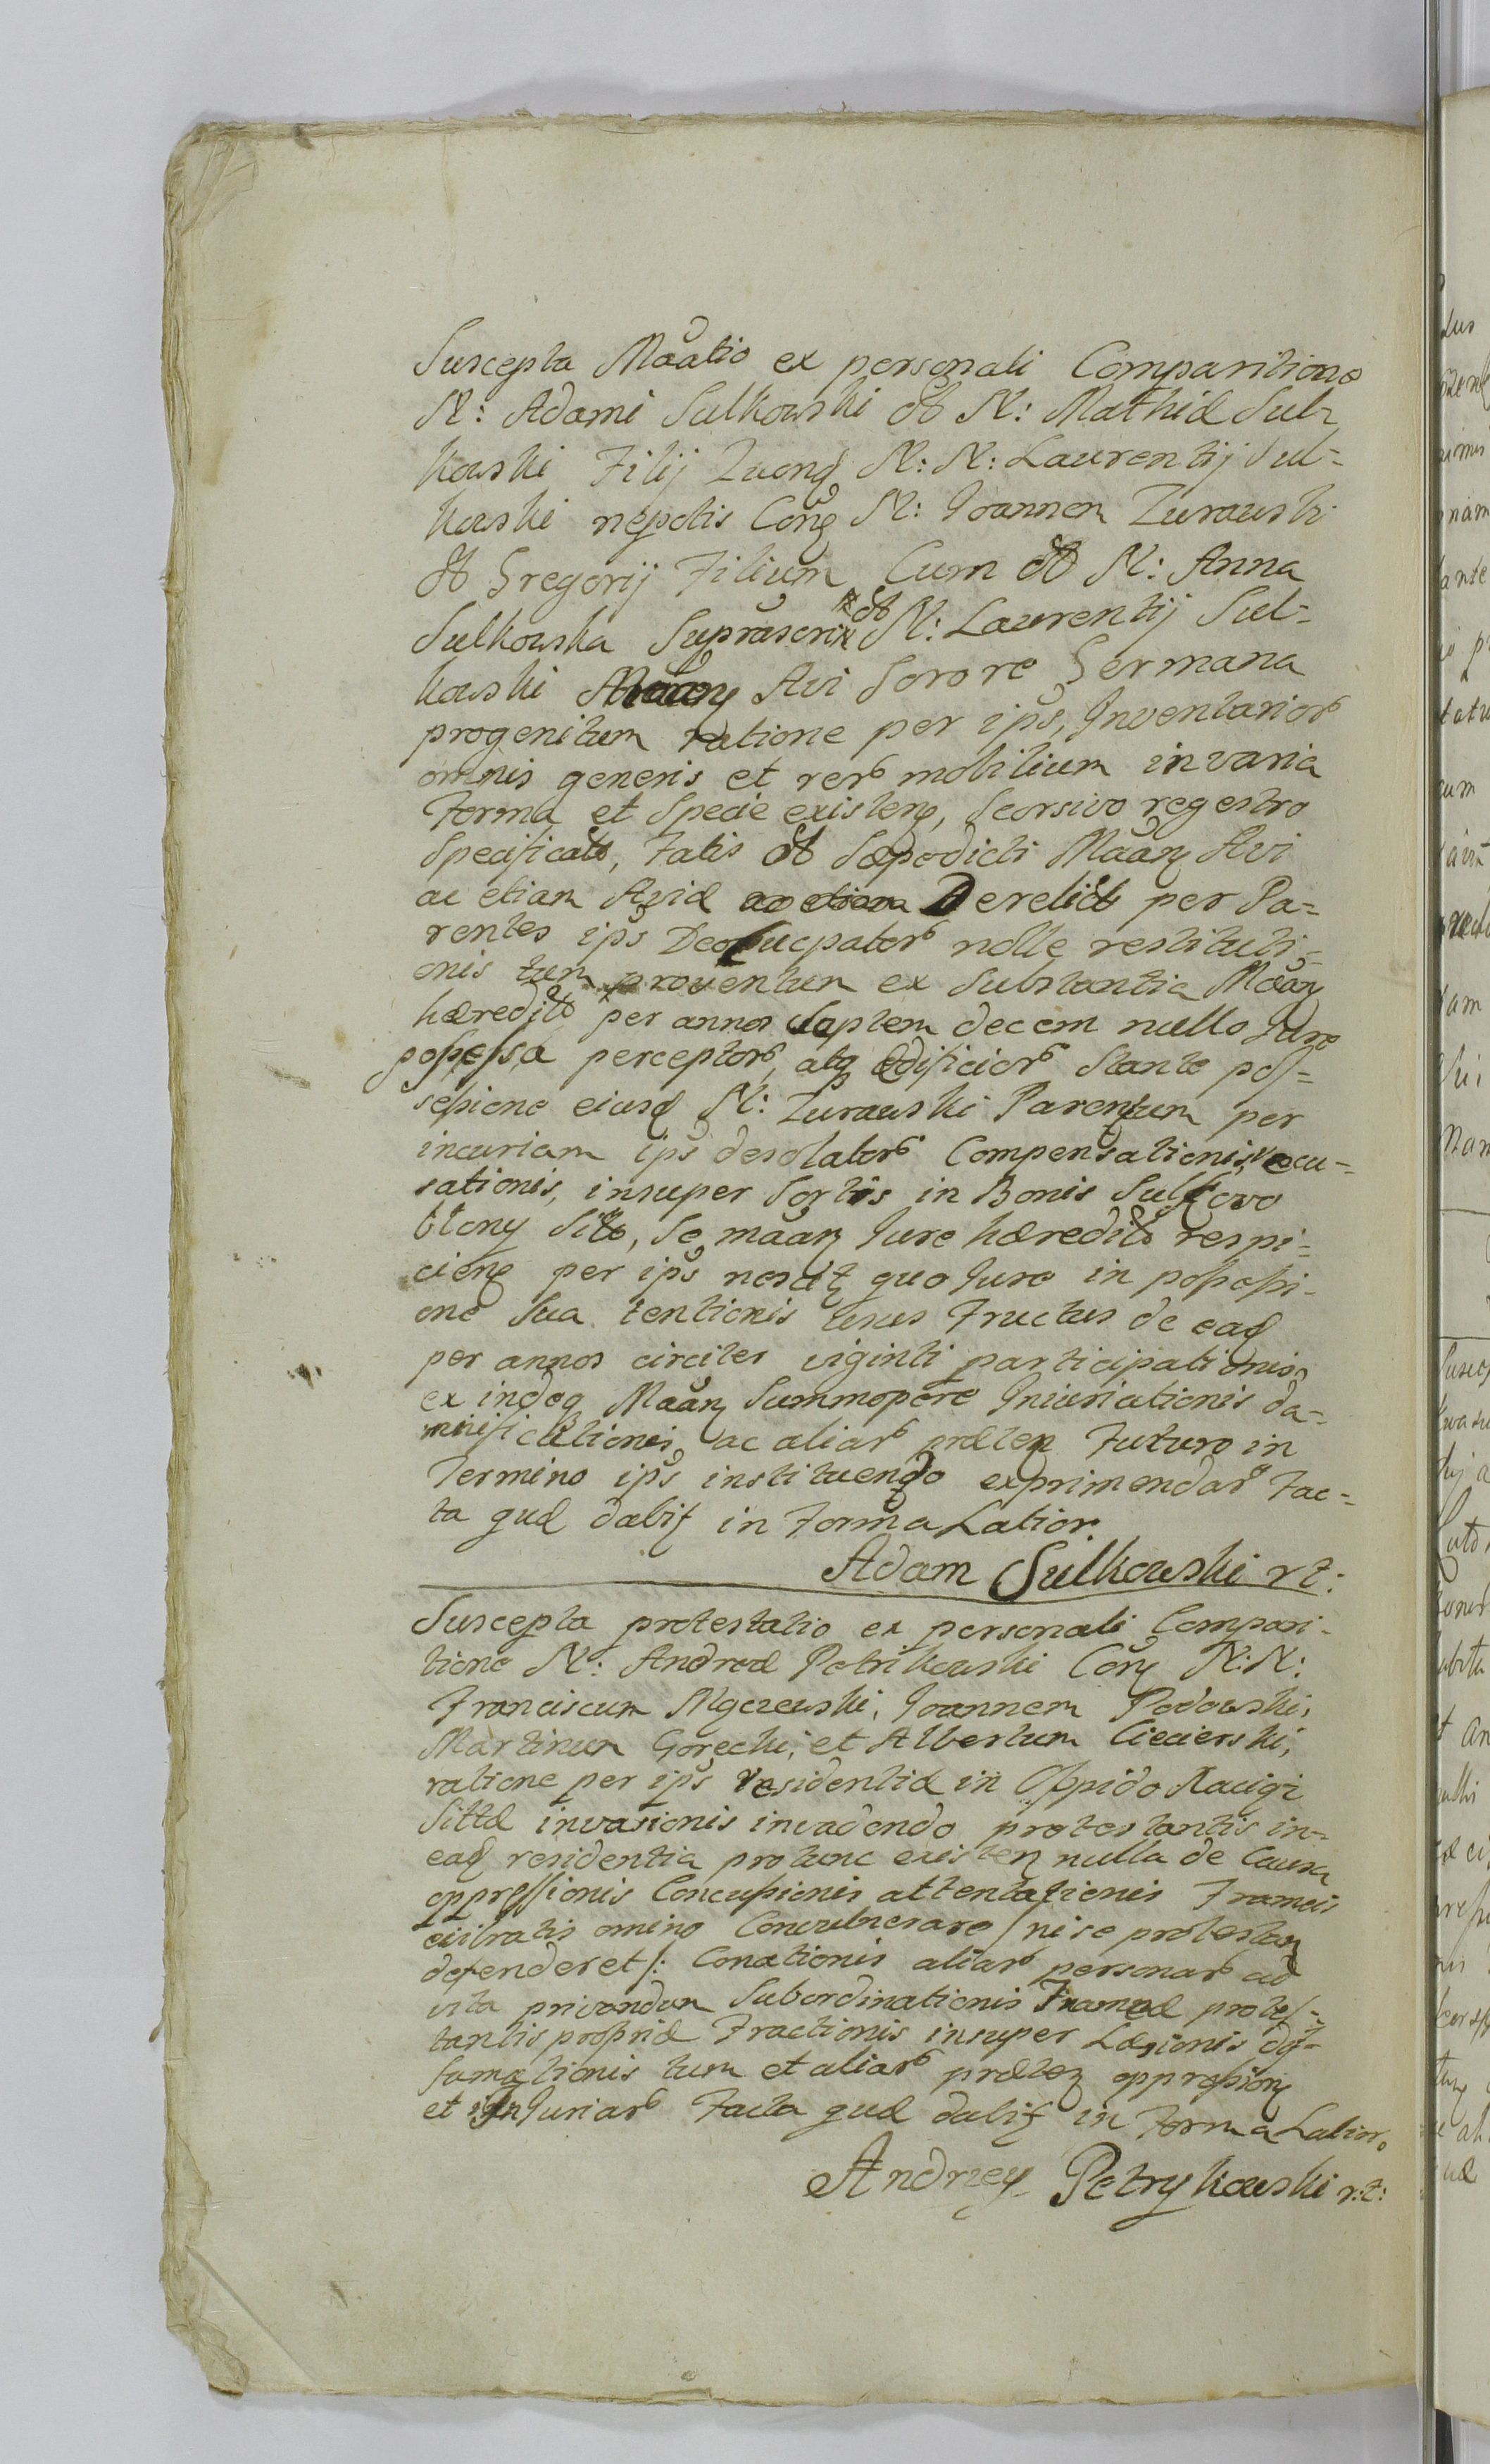 Suscepta Mãatio ex personali Comparitione
N: Adami Sulkowski et N: Mathiæ Sul-
kowski Filij Quonq N: N: Laurentij Sul=
kowski nepotis Conq N: Joannem Zurawski
et Gregorij Filium Cum et N: Anna
Sulkowska Suprascrix et N: Laurentij Sul=
kowski Mãanq Avi Sorore Germana
progenitum ratione per ips, Inventarior
omnis generis et rer mobilium in varia
Forma et Specie existenq, Seorsivo regestro
Specificat, Fatis et Sæpedicti Mãanq Avi
ac etiam Aviæ Derelict per Pa=
rentes ips nolle restituti=
onis tum proventum ex Substantia Mãanq
hæredit per annos Septem decem nullo Jure
possessa perceptor, atq Ædificior Stante pos=
sessione eiusq N: Zurawski Parentum per
incuriam ips desolator Compensationis recu=
sationis, insuper Sortis in Bonis Sulkowo
Sitt, Se mãanq Jure hæredit respi=
cienq per ips nescitq quo Jure in possessi-
one Sua tentionis usus Fructus de eadq
per annos circiter viginti participationis,
ex indeq Mãanq Summopere Iniuriationis da=
mnificationis, ac aliar prætenq Futuro in
Termino ips instituendo exprimendar Fac=
ta quæ dabit in Forma Latior.
Adam Sulkowski rt:
Suscepta protestatio ex personali Compari-
tione N: Andreæ Petrikowski Conq N: N:
Franciscum Joannem Podowski,
Martinum Gorecki, et Albertum Ciecierski,
ratione per ips residentiæ in Oppido Raciąż
Sittæ invasionis invadendo protestantis in=
eadq residentia pro tunc existenq nulla de Causa
oppressionis Concussionis attentationis Frameis
evibratis omino Convulnerare /: nise protestanq
defenderet /: Conationis aliar personar ad
vita privandum Subordinationis Frameæ protes=
tantis propriæ Fractionis insuper Læsionis dif=
famationis tum et aliar prætenq oppressionq
et injuriar Facta quæ dabit in Forma Latior.
Andrzey Petrykowski r:t: